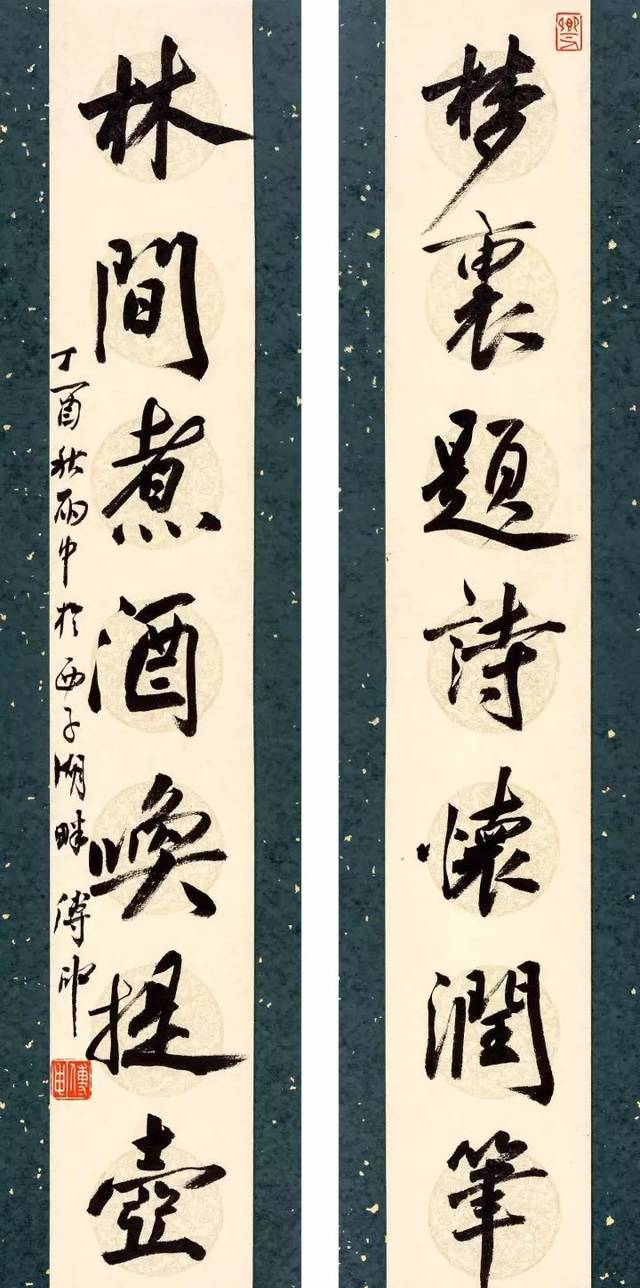 梦裏題詩懷潤筆
林間煮酒喚提壺
丁酉秋雨中於西子湖畔傅申